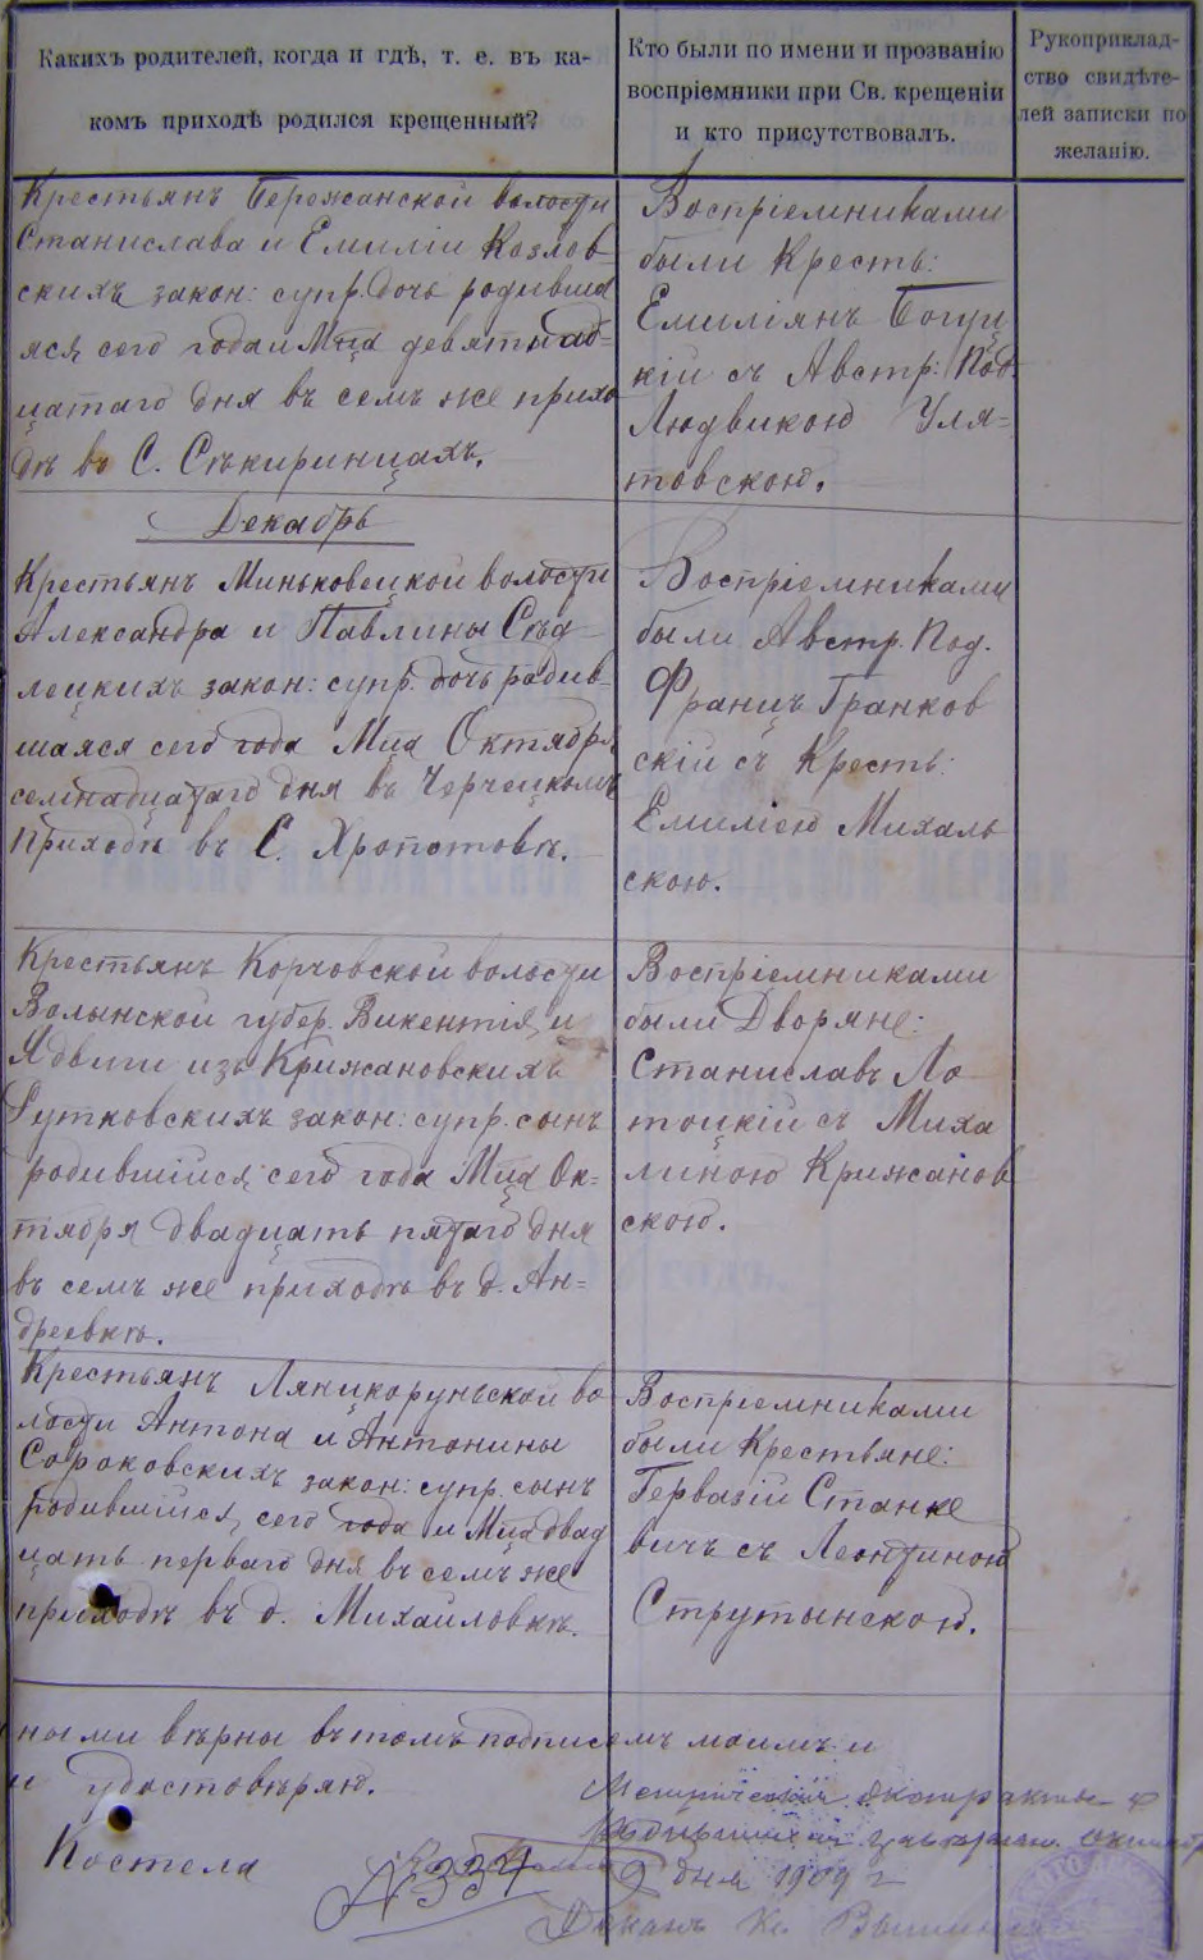 Какихъ родителей, когда и гдѣ, т. е. въ ка-
комъ приходѣ родился крещенный?
Кто были по имени и прозванію
воспріемники при Св. крещеніи
и кто присутствовалъ.
Рукоприклад-
ство свидѣте-
лей записки по
желанію.
Крестьянъ Бережанской волости
Станислава и Емиліи Козлов-
скихъ закон: супр. дочь родивша
яся сего года и Мца девятнад=
цатаго дня въ семъ же прихо
дѣ въ С. Сѣкиринцахъ.
Воспріемниками
были Кресть:
Емиліянъ Богуц
кій съ Австр: Под.
Людвикою Уля=
товскою.
Декабрь
Крестьянъ Миньковецкой волости
Александра и Павлины Сѣд-
лецкихъ закон: супр. дочь родив-
шаяся сего года Мца Октября
семнадцатаго дня въ Черчецкомъ
приходѣ въ С. Хропотовѣ.
Воспріемниками
были Австр. Под.
Францъ Гранков
скій съ Кресть:
Емиліею Михаль
скою.
Крестьянъ Корчовской волости
Волынской губер. Викентія и
Ядвиги изъ Крижановскихъ
Рутковскихъ закон: супр. сынъ
родившійся сего года Мца Ок=
тября двадцать пятаго дня
въ семъ же приходѣ въ д. Ан=
дреевкѣ.
Воспріемниками
были Дворяне:
Станиславъ Ло
тоцкій съ Миха
линою Крижанов
скою.
Крестьянъ Ляницкоруньской во
лости Антона и Антонины
Сороковскихъ закон: супр. сынъ
родившійся сего года и Мца двад
цать перваго дня въ семъ же
приходѣ въ д. Михайловкѣ.
Воспріемниками
были Крестьяне:
Гервазій Станке
вичъ съ Леонтиною
Струтынскою.
ными вѣрны въ томъ подписемъ моимъ и
и удостовѣряю.
Костела
№ 334
9 дня 1909 г
Деканъ Кс.